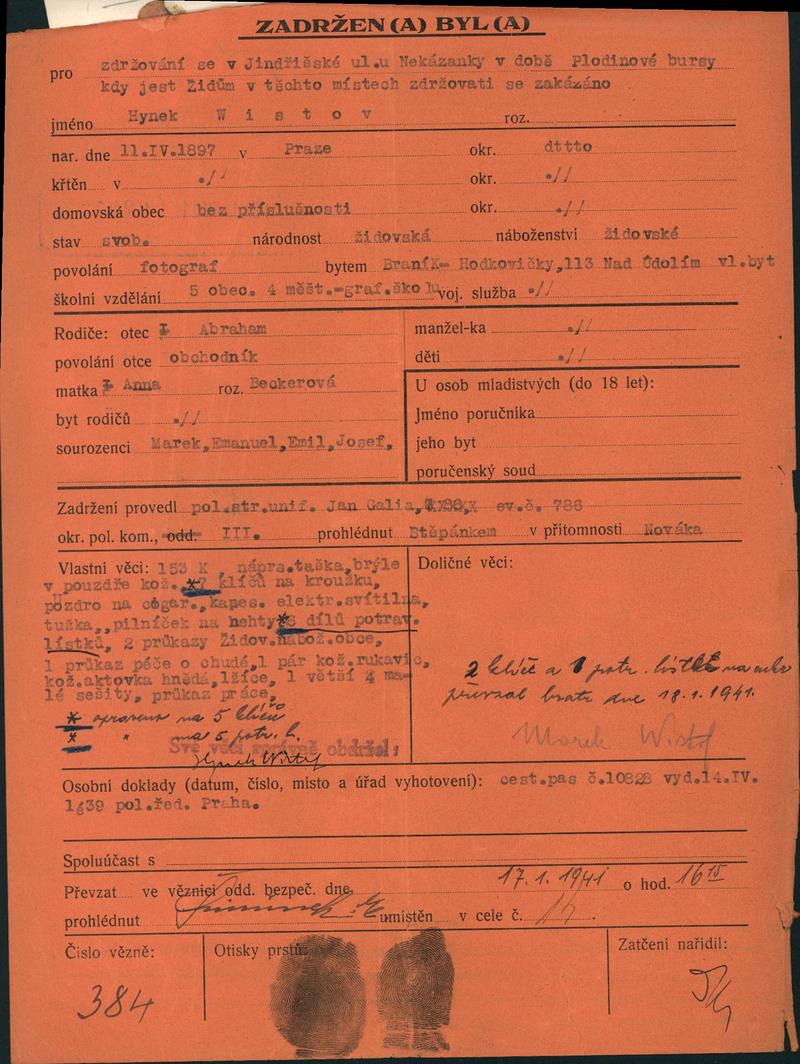 ZADRŽEN(A) BYL(A)
pro zdržování se v Jindřišské ul.u Nekázanky v době Plodinové bursy
kdy jest Židům v těchto místech zdržovati se zakázáno
jméno Hynek Wistov roz.
nar. dne 11.IV.1897 v Praze okr. dttto
křtěn v .// okr. .//
domovská obec bez příslušnosti okr. .//
stav svob. národnost židovská náboženství židovské
povolání fotograf bytem Braník- Hodkovičky,113 Nad Údolím vl.byt
školní vzdělání 5 obec. 4 měšt.-graf.školu voj. služba .//
Rodiče: otec Abraham
povolání otce obchodník
matka Anna roz. Beckerová
byt rodičů .//
sourozenci Marek,Emanuel,Emil,Josef,
manžel-ka .//
děti .//
U osob mladistvých (do 18 let):
Jméno poručníka
jeho byt
poručenský soud
Zadržení provedl pol.str.unif. Jan Galia, ev.č. 786
okr. pol. kom., odd. III. prohlédnut Štěpánkem v přítomnosti Nováka
Vlastní věci: 153 K , náprs.taška,brýle
v pouzdře kož. *7 klíčů na kroužku,
pozdro na cigar.,kapes. elektr.svítilna,
tužka,,pilníček na nehty* dílů potrav.
lístků, 2 průkazy Židov.nábož.obce,
1 průkaz péče o chudé,1 pár kož.rukavic,
kož.aktovka hnědá,lžíce, 1 větší 4 ma-
lé sešity, průkaz práce,
* opraveno na 5 klíčů
* " na 5 potr. l.
Své věci správně obdržel:
Hynek Wistof
Doličné věci:
2 klíče a 1 potr. lístek na cukr
převzal bratr dne 18.1.1941.
Marek Wistof
Osobní doklady (datum, číslo, místo a úřad vyhotovení): cest.pas č.10828 vyd.14.IV.
1939 pol.řed. Praha.
Spoluúčast s
Převzat ve věznici odd. bezpeč. dne 17.1.1941 o hod. 16 15
prohlédnut umístěn v cele č. 14.
Číslo vězně:
384
Otisky prstů:
Zatčení nařídil: